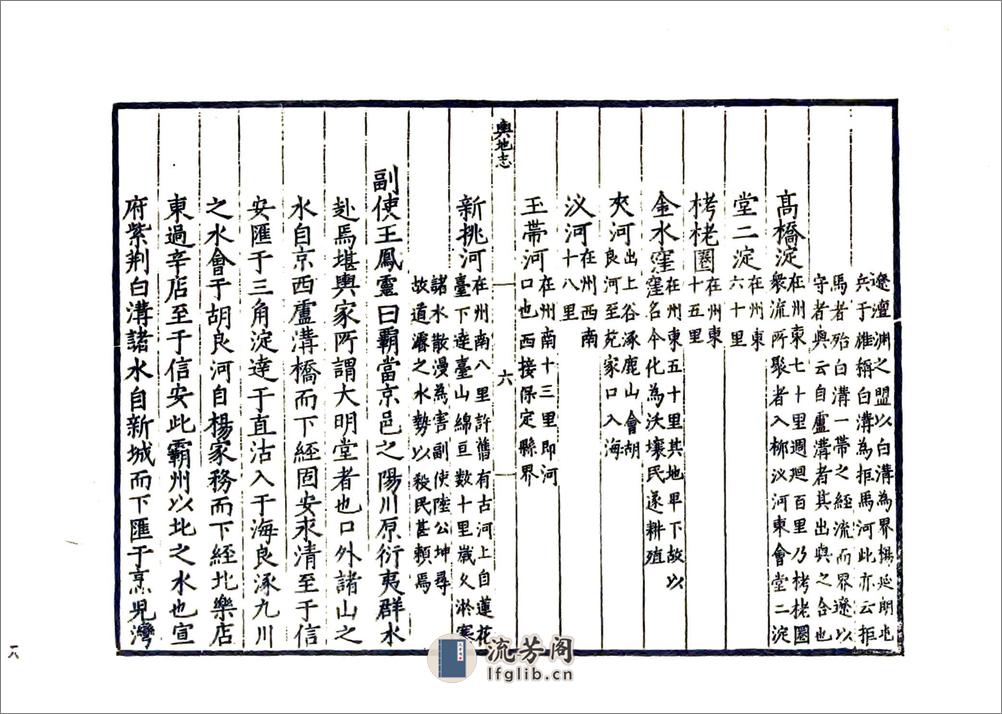 遼澶渊之盟以白溝為界楊延朗屯
兵于淮稱白溝為拒馬河此亦云拒
馬者殆白溝一帶之經流而界遼以
守者與云自盧溝者其出與之合也
髙橋淀在州東七十里週廻百里乃栲栳圏
衆流所聚者入柳汊河東會堂二淀
堂二淀在州東
六十里
栲栳圏在州東
十五里
金水窪在州東五十里其地早下故以
窪名今化為沃壤民遂耕殖
夾河出上谷涿鹿山會胡
良河至苑家口入海
汊河在州西南
十八里
玉帶河在州南十三里即河
口也西接保定縣界
輿地志
六
新挑河在州南八里許舊有古河上自蓮花
臺下逹臺山綿亘數十里歲久淤塞
諸水散漫為害副使陸公坤尋
故道濬之水勢以殺民甚頼焉
副使王鳳靈曰霸當京邑之陽川原衍夷群水
赴焉堪輿家所謂大明堂者也口外諸山之
水自京西盧溝橋而下經固安永清至于信
安匯于三角淀達于直沽入于海良涿九川
之水會于胡良河自楊家務而下經北樂店
東過辛店至于信安此霸州以北之水也宣
府紫荆白溝諸水自新城而下匯于烹児灣
一八
流芳阁
lfglib.cn